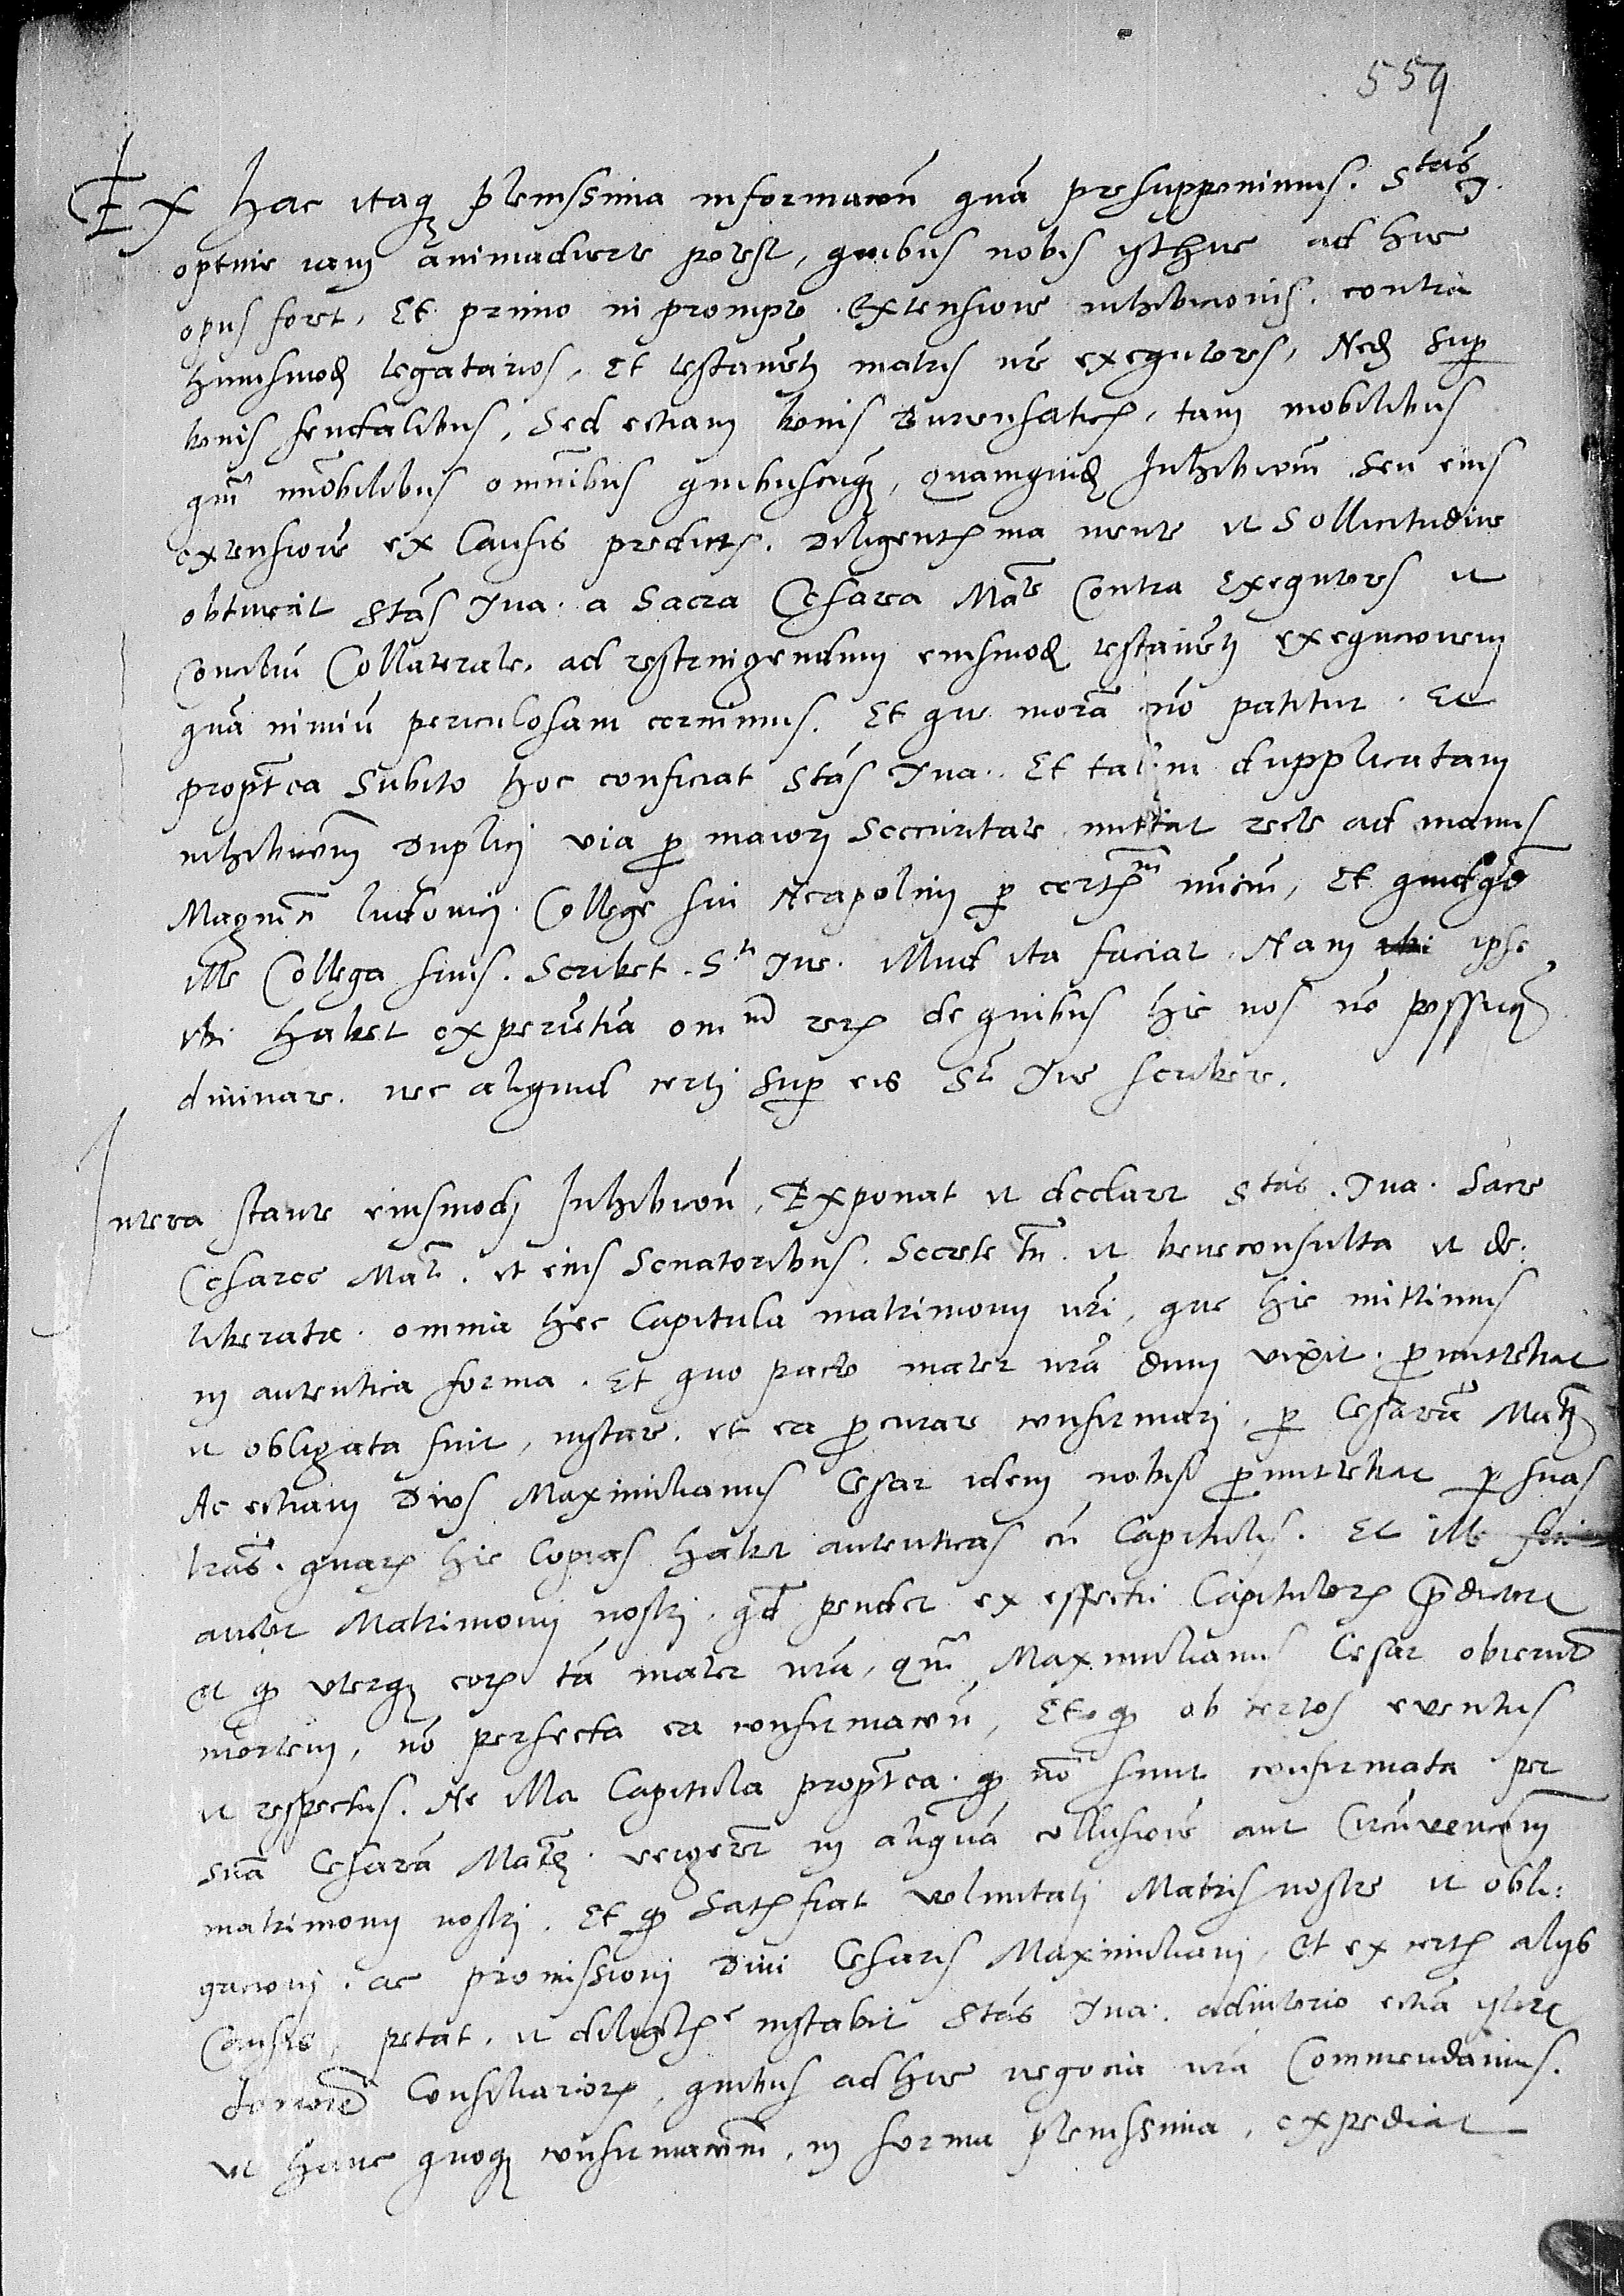 559
Ex hac itaq plenissima informacõn quã presupponimus. Stas T.
optime iam animaduerte potest, quibus nobis isthic ad hec
opus foret, Et primo in promptu Extensione inhibicionis contra
huiusmod legatarios, Et testamẽti matris nre exequtores, Ned Sup
bonis feudalibus, Sed etiam bonis Burensatic, tam mobilibus
qm immobilibus omnibus quibuscuq, quamquid Inhibicõm seu eius
extensionẽ ex Causis predictis. Diligentissima mente et Sollicitudine
obtineat Stas Tua a Sacra Cesarea Mate Contra Exequtores et
Consiliũ Collaterale. ad restringendum eiusmod testamẽti exequcionem
quã nimiũ periculosam cernimus. Et que morã nõ patitur. Et
proptea Subito hoc conficiat Stas Tua. Et talem dupplicatam
inhibicõm Duplici via p maiori Seccuritate mittat recte ad manus
Magnifici ludouici College sui Neapolim p certissm nũciũ, Et quidqd
ille Collega suus Scribet Sti Tue. Illud ita faciat, Nam ipse
ibi habet experiẽtiã omniũ rerũ de quibus hic nos nõ possumus
diuinare. nec aliquid certi Sup eis Sti Tue scribere.
Interea stante eiusmodi Inhibicõn, Exponat et declaret Stas. Tua. Sacre
Cesaree Mati. et eius Senatoribus. Secrete tñ et bene consulta et de:
liberate. omnia hec Capitula matrimonij nri, que hic mittimus
in autentica forma. Et quo pacto mater nra dum vixit. pmittebat
et obligata fuit, instare. et ea pcurare confirmari, p Cesareã Matẽ
Ac etiam Diuus Maximilianus Cesar idem nobis pmittebat p suas
lras. quarũ hic Copias habet autenticas cũ Capitulis. Et ille
autor Matrimonij nostri. qd pendet ex effectu Capitulorũ pdictorũ
Et q uterq eorũ tã mater nra, qm Maximilianus Cesar obierunt
mortem, nõ perfecta ea confirmacõn, Et q ob certos euentus
et respectus. Ne illa Capitula proptea q nõ sunt confirmata per
suã Cesareã Matẽ. vergeret in aliquã collusionẽ aut Circũuencõem
matrimonij nostri. Et q Satisfiat voluntati Matris nostre et obli:
gacioni. ac promissioni Diui Cesaris Maximiliani, Et ex certis alijs
Causis, petat. et diligẽter instabit Stas Tua. adiutorio etiã istorũ
Consiliariorũ, quibus ad hec negocia nra Commendamus.
ut hanc quoq confirmacõm, in forma plenissima, expediat